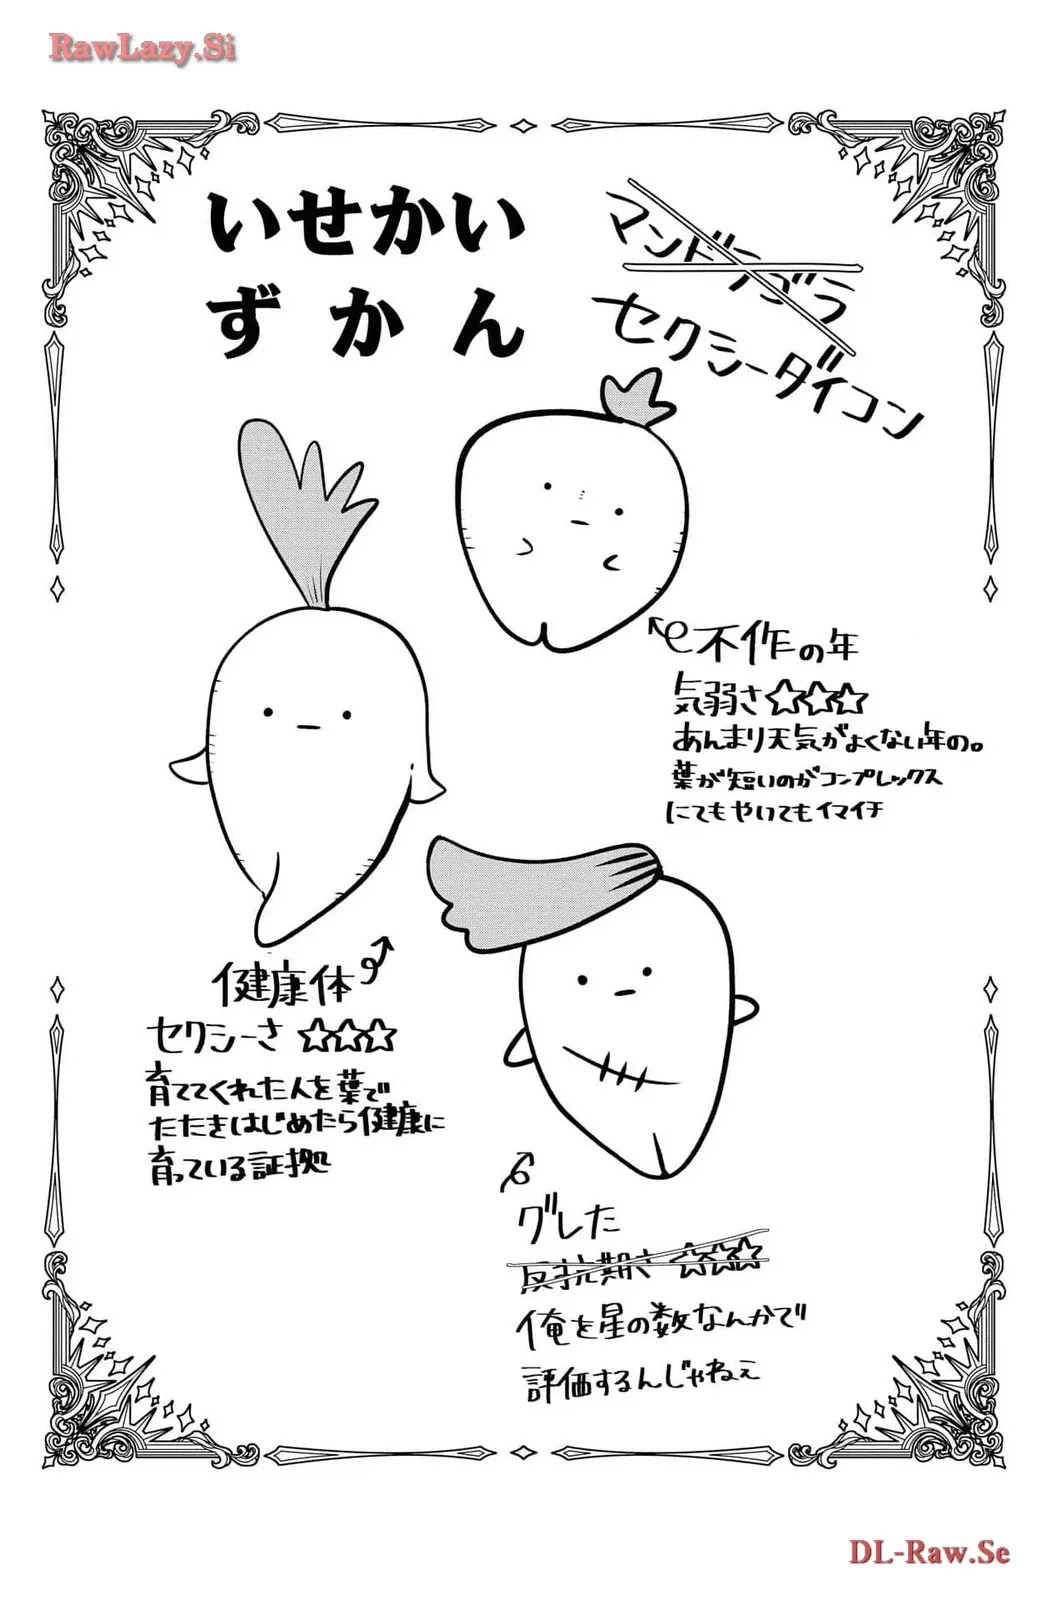 RawLazy.Si
いせかい
ずかん
マンドラゴラ
セクシーダイコン
不作の年
気弱さ☆☆☆
あんまり天気がよくない年の。
葉が短いのがコンプレックス
にてもやいてもイマイチ
健康体
セクシーさ ☆☆☆
育ててくれた人を葉で
たたきはじめたら健康に
育っている証拠
グレた
反抗期さ ☆☆☆
俺を星の数なんかで
評価するんじゃねぇ
DL-Raw.Se